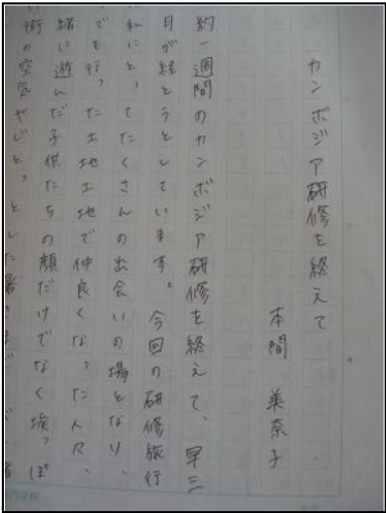 カンボジア研修を終えて
本間 美奈子
約一週間のカンボジア研修を終えて、早三
月が経とうとしています。今回の研修旅行
私にとってたくさんの出会いの場となり、
でも行った土地土地で仲良くなった人々、
緒に遊んだ子供たちの顔だけでなく埃っぽ
街の空気やじとっとした暑さまで